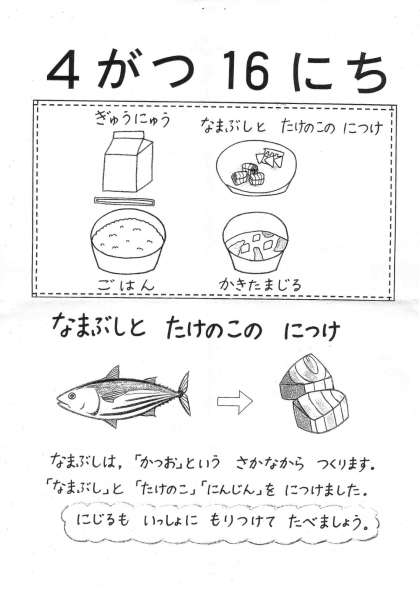 4がつ16にち
ぎゅうにゅう
なまぶしと たけのこの につけ
ごはん
かきたまじる
なまぶしと たけのこの につけ
なまぶしは,「かつお」という さかなから つくります.
「なまぶし」と 「たけのこ」「にんじん」を につけました.
にじるも いっしょに もりつけて たべましょう。